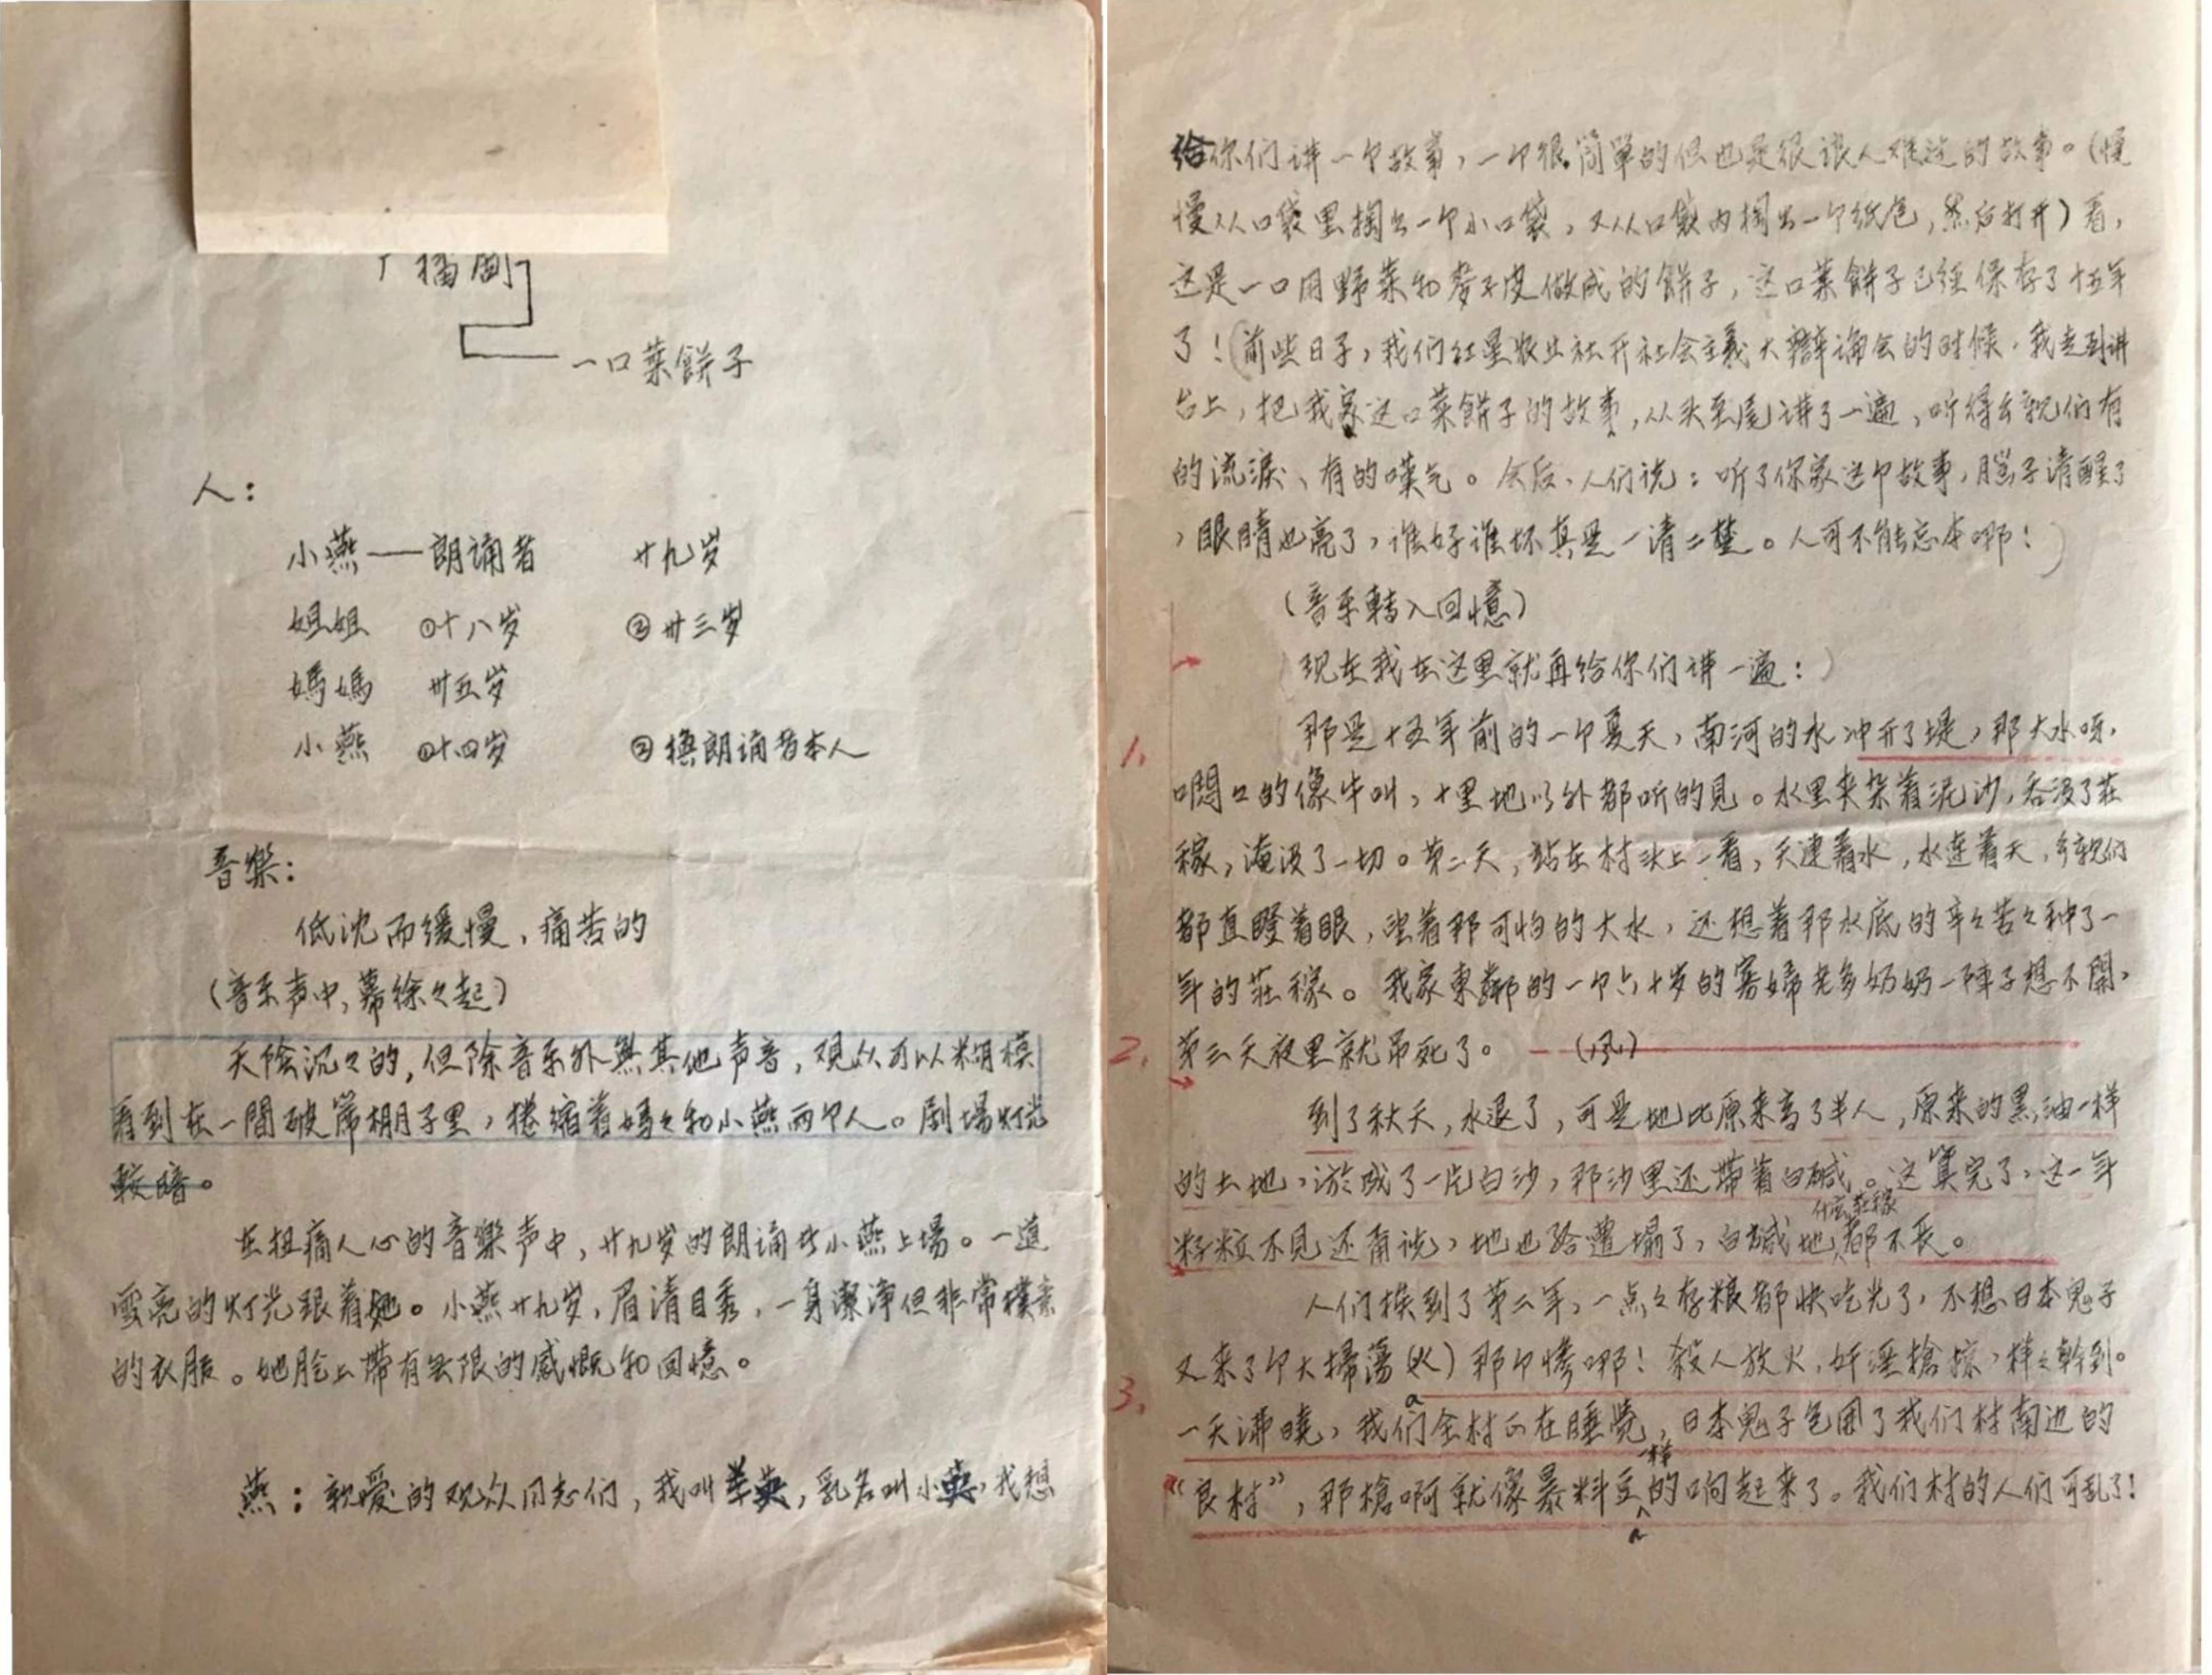 广播剧
一口菜餅子
人：
小燕——朗诵者 廿九岁
姐姐 ①十八岁 ②卅三岁
媽媽 卅五岁
小燕 ①十四岁 ②換朗诵者本人
音樂：
低沈而缓慢，痛苦的
（音乐声中，幕徐々起）
天陰沉々的，但除音乐外無其他声音，观众可以糢模
看到在一間破席棚子里，捲缩着媽々和小燕两个人。劇場灯光
較暗。
在扭痛人心的音樂声中，廿九岁的朗诵者小燕上場。一道
雪亮的灯光跟着她。小燕廿九岁，眉清目秀，一身潔净但非常樸素
的衣服。她脸上带有無限的感慨和回憶。
燕：親愛的观众同志们，我叫 英，乳名叫小英，我想
给你们讲一个故事，一个很简單的但也是很讓人难过的故事。（慢
慢从口袋里掏出一个小口袋，又从口袋内掏出一个纸包，然后打开）看，
这是一口用野菜和麥子皮做成的餅子，这口菜餅子已经保存了十五年
了！（前些日子，我们红星农业社开社会主義大辯論会的时候，我走到讲
台上，把我家这口菜餅子的故事，从头至尾讲了一遍，听得乡親们有
的流淚、有的嘆气。会后，人们说：听了你家这个故事，脑子清醒了
，眼睛也亮了，谁好谁坏真是一清二楚。人可不能忘本啊！）
（音乐轉入回憶）
（现在我在这里就再给你们讲一遍：）
1. 那是十五年前的一个夏天，南河的水冲开了堤，那大水呀，
悶々的像牛叫，十里地以外都听的見。水里夹杂着泥沙，吞没了莊
稼，淹没了一切。第二天，站在村头上一看，天連着水，水連着天，乡親们
都直瞪着眼，望着那可怕的大水，还想着那水底的辛々苦々种了一
年的莊稼。我家東鄰的一个六十岁的寡婦老多奶奶一陣子想不開，
2. 第三天夜里就吊死了。 （风）
到了秋天，水退了，可是地比原来高了半人，原来的黑油一样
的土地，淤成了一片白沙，那沙里还带着白碱。这算完了，这一年
什么莊稼
籽粒不見还甭说，地也给遭塌了，白碱地都不長。
人们挨到了第二年，一点々存粮都快吃光了，不想日本鬼子
又来了个大掃蕩（火）那个慘啊！殺人放火，奸淫搶掠，样々幹到。
3. 一天沸曉，我们全村正在睡覺，日本鬼子包围了我们村南边的
样
“良村”，那槍啊就像暴料豆的响起来了。我们村的人们可乱了！